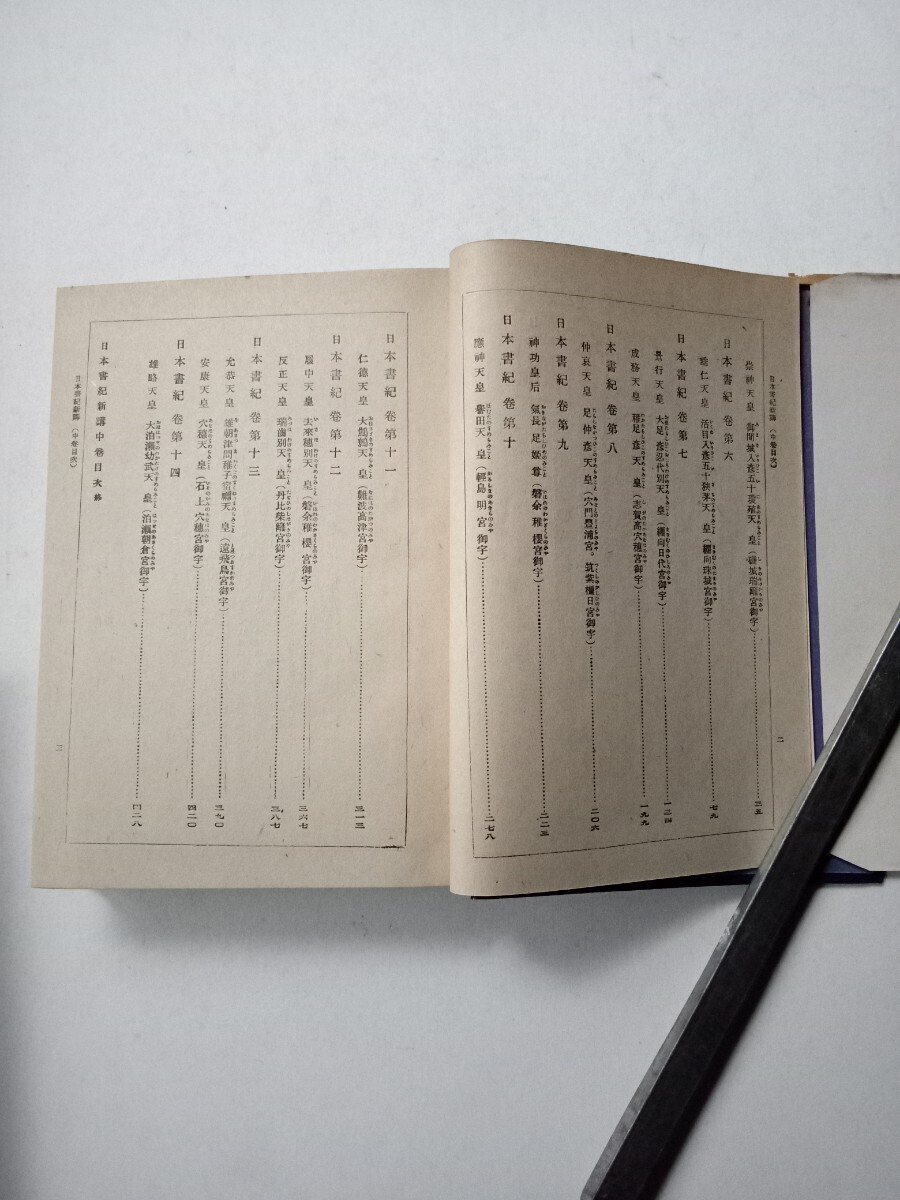 日本書紀新講（中卷目次）
二
崇神天皇 御間城入彥五十瓊殖天皇（磯城瑞籬宮御宇）……三五
日本書紀 卷第六
垂仁天皇 活目入彥五十狹茅天皇（纒向珠城宮御宇）……七九
日本書紀 卷第七
景行天皇 大足彥忍代別天皇（纒向日代宮御宇）……一二四
成務天皇 稚足彥天皇（志賀高穴穗宮御宇）……一九九
日本書紀 卷第八
仲哀天皇 足仲彥天皇（穴門豐浦宮。筑紫橿日宮御宇）……二〇六
日本書紀 卷第九
神功皇后 氣長足姬尊（磐余稚櫻宮御宇）……二二三
日本書紀 卷第十
應神天皇 譽田天皇（輕島明宮御宇）……二七八
日本書紀 卷第十一
仁德天皇 大鷦鷯天皇（難波高津宮御宇）……三一三
日本書紀 卷第十二
履中天皇 去來穗別天皇（磐余稚櫻宮御宇）……三六七
反正天皇 瑞齒別天皇（丹比柴籬宮御宇）……三八七
日本書紀 卷第十三
允恭天皇 雄朝津間稚子宿禰天皇（遠飛鳥宮御宇）……三九〇
安康天皇 穴穗天皇（石上穴穗宮御宇）……四二〇
日本書紀 卷第十四
雄略天皇 大泊瀨幼武天皇（泊瀨朝倉宮御宇）……四二八
日本書紀新講中卷目次 終
日本書紀新講（中卷目次）
三